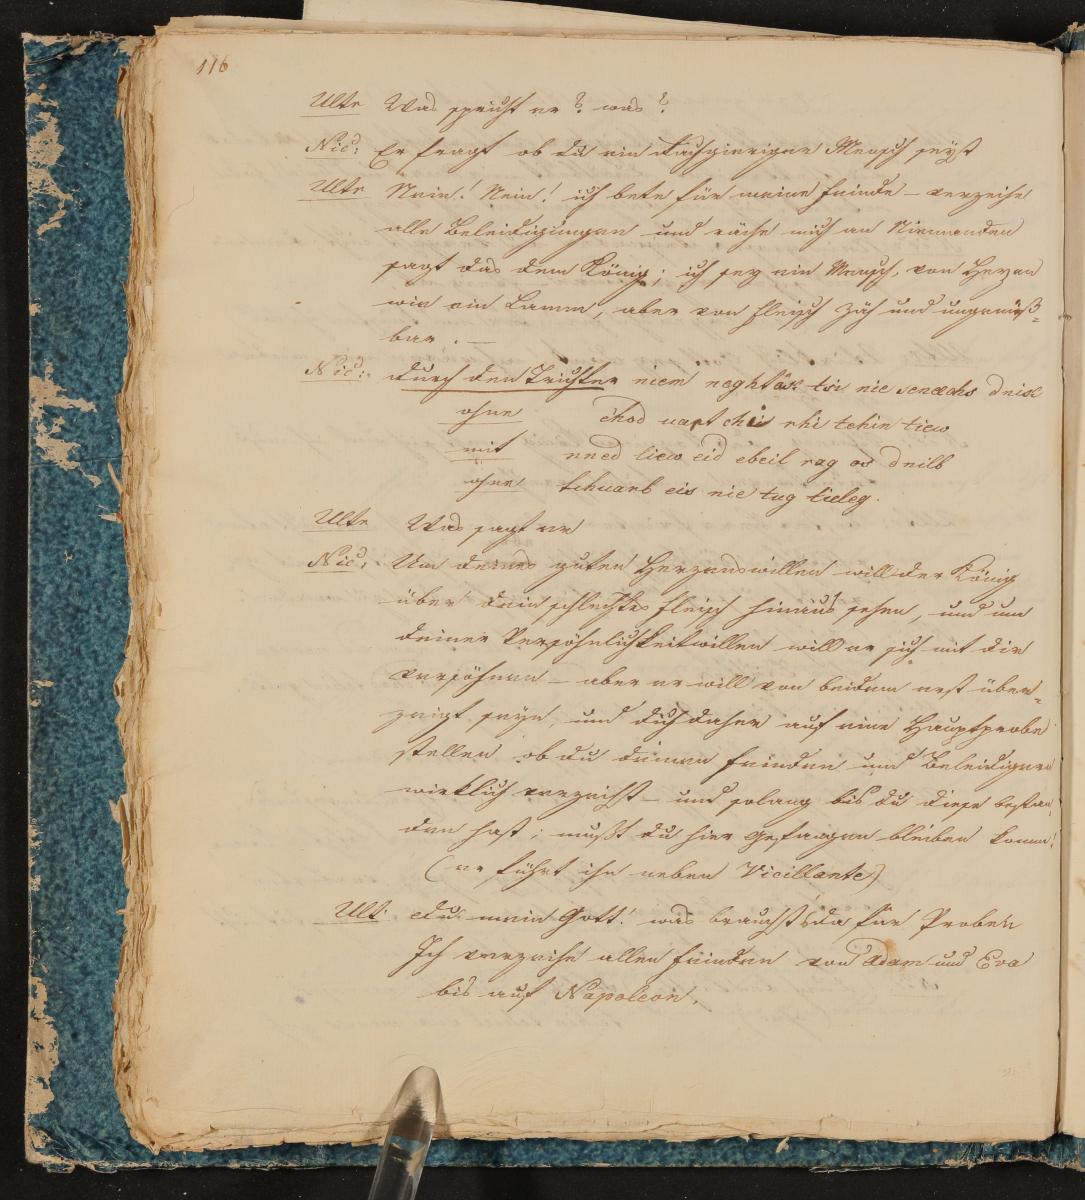 116
Ulte Was spricht er? was?
Nic: Er fragt ob du ein rachgieriger Mensch seyst
Ulte Nein! Nein! ich bete für meine Feinde – verzeihe
alle Beleidigungen und räche mich an Niemanden
sagt das dem König; ich sey ein Mensch von Herzen
wie ein Lamm, aber von Fleisch zäh und ungenieß=
bar. —
Nic: durch den Trichter niem tsi nie dnis
ohne chod chi rhi tchin tiew
mit nned liew eid ebeil rag os dnilb
ohne tchuarb eis nie tug tieleg.
Ulte Was sagt er
Nic: Um deines guten Herzenswillen will der König
über dein schlechtes Fleisch hinaus sehen, und um
deiner Versöhnlichkeitwillen will er sich mit dir
versöhnen – aber er will von beidem erst über=
zeugt seyn, und dich daher auf eine Hauptprobe
stellen ob du deinen Feinden und Beleidigern
wirklich verzeihst – und solang bis du diese bestan
den hast: mußt du hier gefangen bleiben komm!
(er führt ihn neben Vicillante)
Ult: du mein Gott! was brauchts da für Proben
Ich verzeihe allen Feinden von Adam und Eva
bis auf Napoleon.